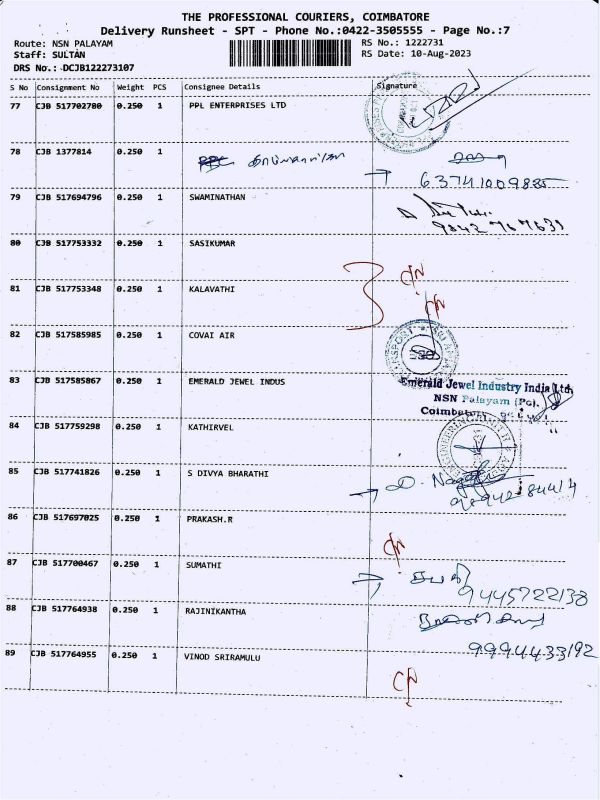 THE PROFESSIONAL COURIERS, COIMBATORE
Delivery Runsheet - SPT - Phone No.:0422-3505555 - Page No.:7
Route: NSN PALAYAM
RS No.: 1222731
Staff: SULTAN
RS Date: 10-Aug-2023
DRS No.: DCJB122273107
S No Consignment No Weight PCS Consignee Details Signature
77 CJB 517702780 0.250 1 PPL ENTERPRISES LTD
78 CJB 1377814 0.250 1
79 CJB 517694796 0.250 1 SWAMINATHAN
80 CJB 517753332 0.250 1 SASIKUMAR
81 CJB 517753348 0.250 1 KALAVATHI
82 CJB 517585985 0.250 1 COVAI AIR
83 CJB 517585867 0.250 1 EMERALD JEWEL INDUS
Emerald Jewel Industry India Ltd,
NSN Palayam (Po).
84 CJB 517759298 0.250 1 KATHIRVEL
85 CJB 517741826 0.250 1 S DIVYA BHARATHI
86 CJB 517697025 0.250 1 PRAKASH.R
87 CJB 517700467 0.250 1 SUMATHI
9445722138
88 CJB 517764938 0.250 1 RAJINIKANTHA
9994433192
89 CJB 517764955 0.250 1 VINOD SRIRAMULU